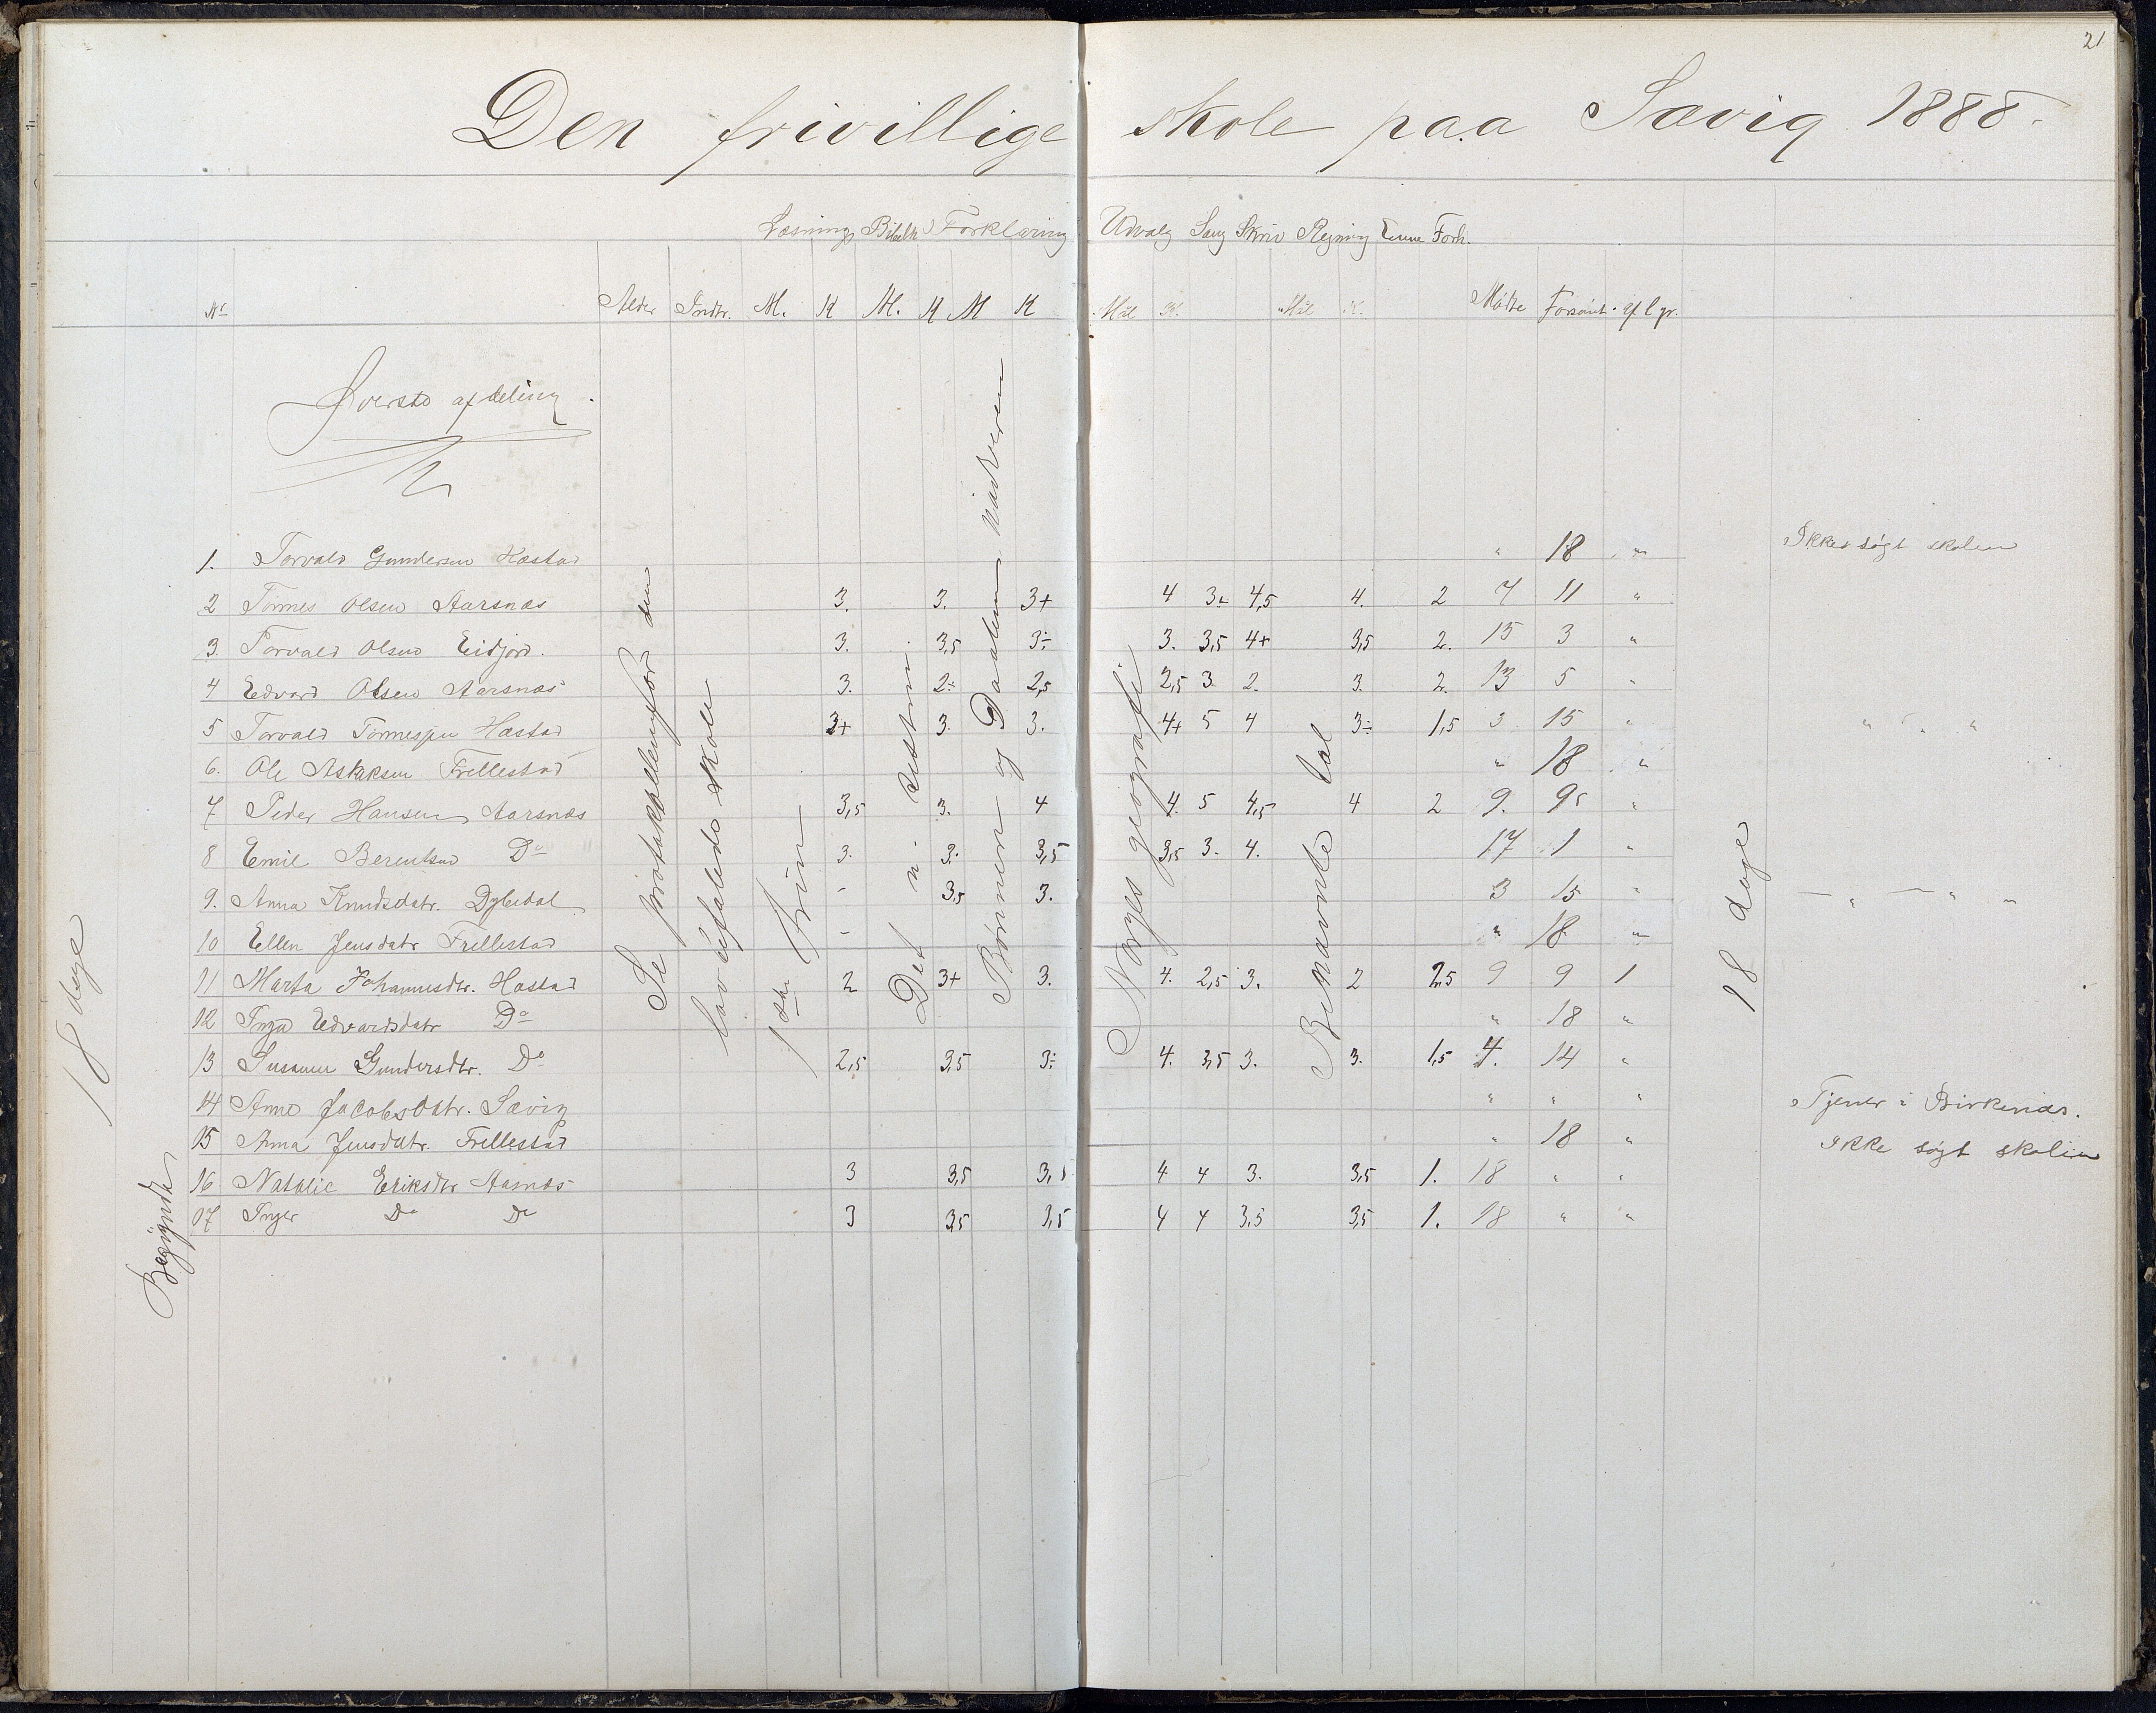 21
Den frivillige skole paa Sævig 1888.
Læsning Bibelh. Forklaring Udvalg Sang Skriv Regning Evne Forh.
No Alder Indtr. M. K M. K M K Mål K. Mål K. Mødte Forsømt af l gr.
Øverste afdeling.
1. Torvald Gundersen Hæstad " 18 " Ikke søgt skolen
2 Tønnes Olsen Aarsnæs 3. 3. 3+ 4 3+ 4,5 4. 2 7 11 "
3. Torvald Olsen Eidjord. 3. 3,5 3÷ 3. 3,5 4+ 3,5 2. 15 3 "
4 Edvard Olsen Aarsnæs 3. 2÷ 2,5 2,5 3. 2. 3. 2. 13 5 "
5 Torvald Tønnesen Hæstad 3+ 3. 3. 4+ 5 4 3÷ 1,5 3 15 " " " "
6. Ole Aslaksen Frellestad " 18 "
7 Peder Hansen Aarsnæs 3,5 3. 4 4. 5 4,5 4 2 9. 9 "
8 Emil Berentsen Do 3. 3. 3,5 3,5 3. 4. 17 1 "
9. Anna Knudsdatr. Dybedal - 3,5 3. 3 15 " — " — " "
10 Ellen Jensdatr Frellestad - " 18 "
11 Marta Johannesdtr. Hæstad 2 3+ 3. 4. 2,5 3. 2 2,5 9 9 1
12 Inga Edvardsdatr Do " 18 "
13 Susanne Gundersdtr. Do 2,5 3,5 3÷ 4. 3,5 3. 3. 1,5 4. 14 "
14 Anne Jacobsdtr. Sævig " " " Tjener i Birkenæs.
15 Anna Jensdatr. Frellestad " 18 " Ikke søgt skolen
16 Natalie Eriksdtr Aarsnæs 3 3,5 3,5 4 4 3. 3,5 1. 18 " "
17 Inger Do Do 3 3,5 3,5 4 4 3,5 3,5 1. 18 " "
18 dage
Begyndte
Se protokollen for den
lovbefalede skole
1ste Trin
Det n. testm.
Børnene og Daaben nadveren
Norges geografi
Benævnte tal
18 dage